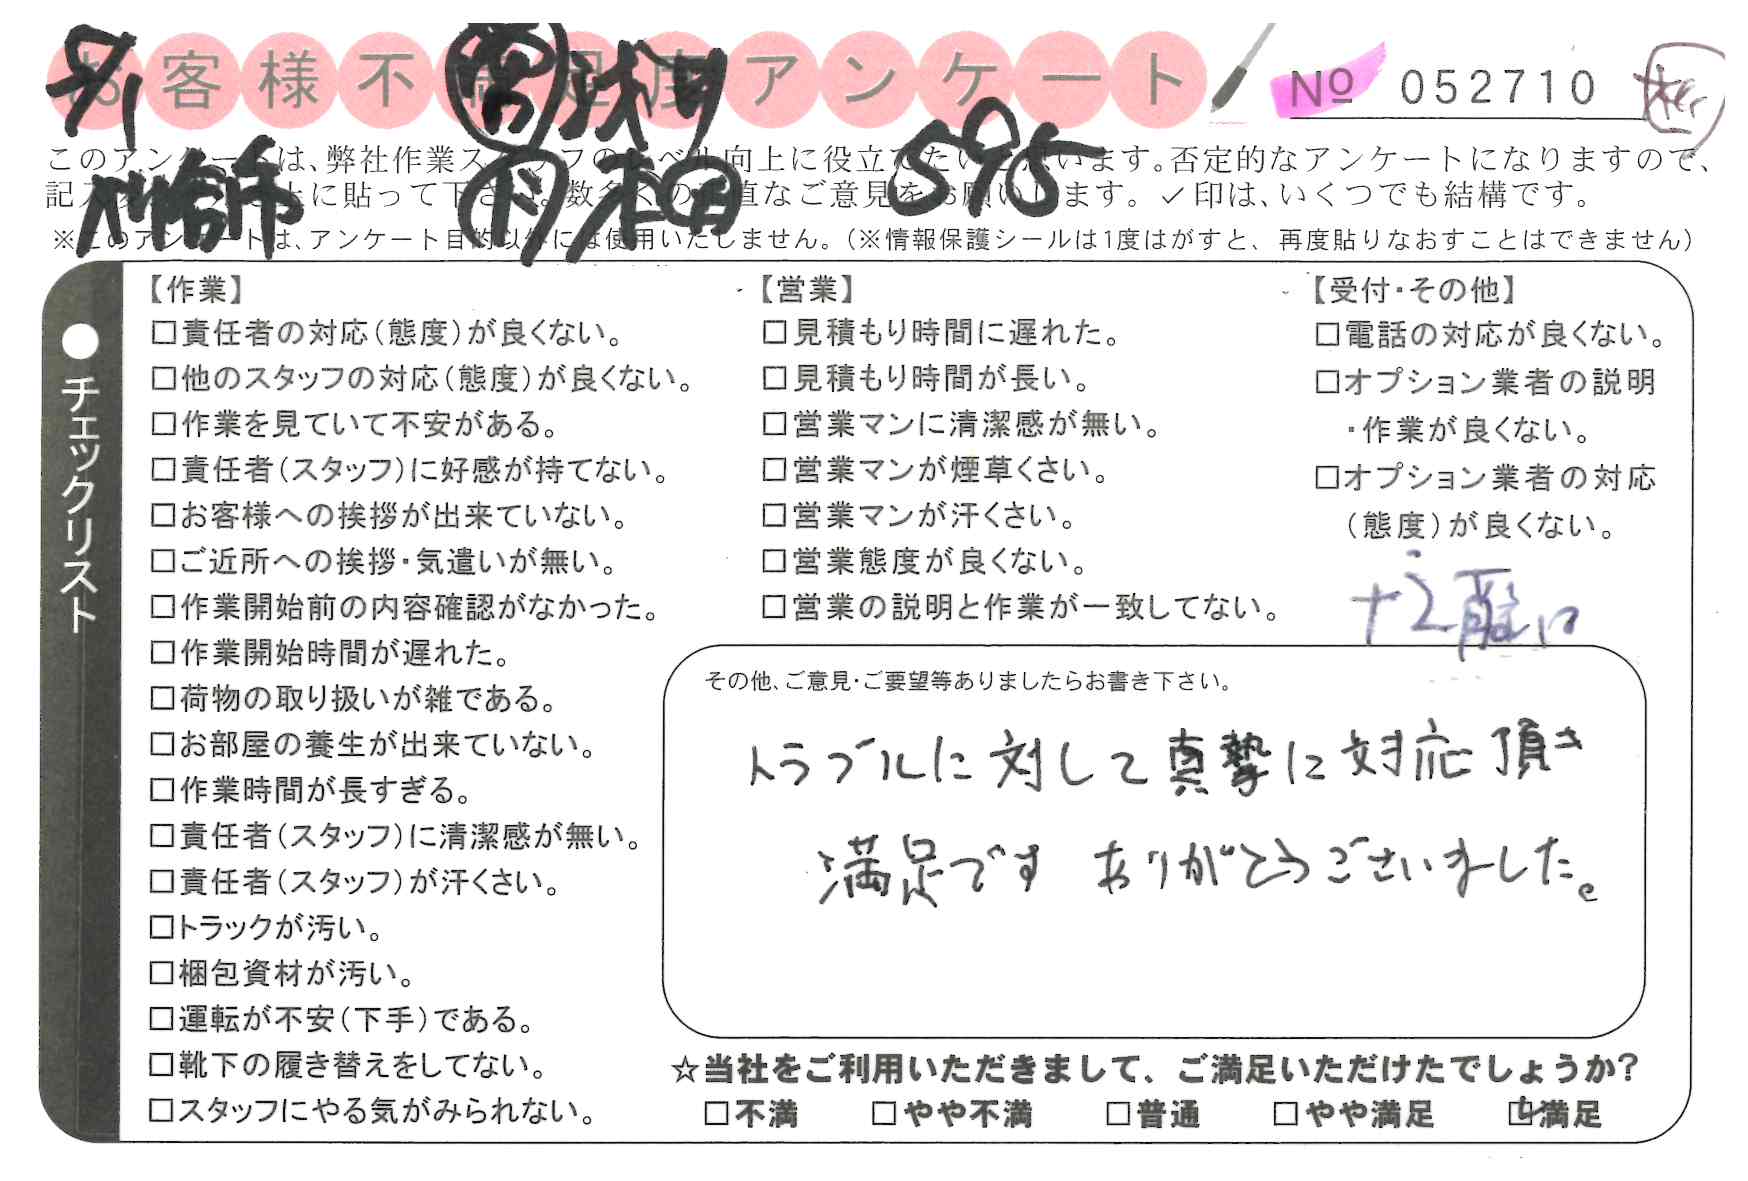 お客様不満足度アンケート
№ 052710
8/1
595
このアンケートは、弊社作業スタッフのレベル向上に役立てたいと思います。否定的なアンケートになりますので、
に貼って下さい。数多くの正直なご意見をお願いします。✓印は、いくつでも結構です。
※このアンケートは、アンケート目的以外には使用いたしません。（※情報保護シールは1度はがすと、再度貼りなおすことはできません）
●チェックリスト
【作業】
□責任者の対応（態度）が良くない。
□他のスタッフの対応（態度）が良くない。
□作業を見ていて不安がある。
□責任者（スタッフ）に好感が持てない。
□お客様への挨拶が出来ていない。
□ご近所への挨拶・気遣いが無い。
□作業開始前の内容確認がなかった。
□作業開始時間が遅れた。
□荷物の取り扱いが雑である。
□お部屋の養生が出来ていない。
□作業時間が長すぎる。
□責任者（スタッフ）に清潔感が無い。
□責任者（スタッフ）が汗くさい。
□トラックが汚い。
□梱包資材が汚い。
□運転が不安（下手）である。
□靴下の履き替えをしてない。
□スタッフにやる気がみられない。
【営業】
□見積もり時間に遅れた。
□見積もり時間が長い。
□営業マンに清潔感が無い。
□営業マンが煙草くさい。
□営業マンが汗くさい。
□営業態度が良くない。
□営業の説明と作業が一致してない。
【受付・その他】
□電話の対応が良くない。
□オプション業者の説明
・作業が良くない。
□オプション業者の対応
（態度）が良くない。
その他、ご意見・ご要望等ありましたらお書き下さい。
トラブルに対して真摯に対応頂き
満足です ありがとうございました。
☆当社をご利用いただきまして、ご満足いただけたでしょうか?
□不満 □やや不満 □普通 □やや満足 ☑満足